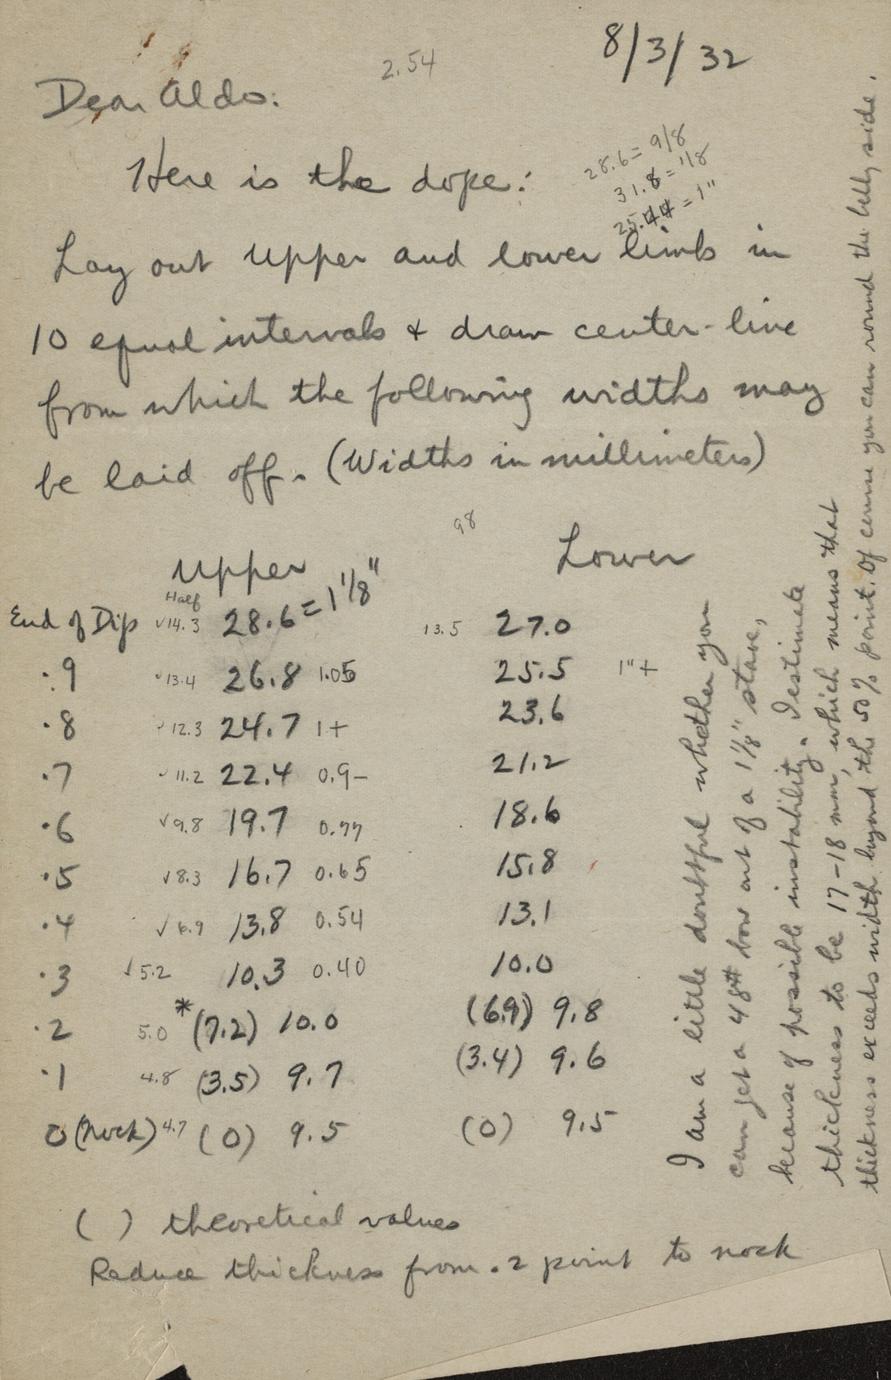 8/3/32
2.54
Dear Aldo:
28.6 = 9/8
31.8 = 1/8
25.44 = 1"
Here is the dope:
Lay out upper and lower limbs in
10 equal intervals & draw center-line
from which the following widths may
be laid off. (Widths in millimeters)
98
Upper Lower
Half
End of Dip √14.3 28.6 = 1 1/8" 13.5 27.0
.9 √13.4 26.8 1.05 25.5 1"+
.8 √12.3 24.7 1+ 23.6
.7 √11.2 22.4 0.9- 21.2
.6 √9.8 19.7 0.77 18.6
.5 √8.3 16.7 0.65 15.8
.4 √6.9 13.8 0.54 13.1
.3 √5.2 10.3 0.40 10.0
.2 5.0 *(7.2) 10.0 (6.9) 9.8
.1 4.8 (3.5) 9.7 (3.4) 9.6
0 (nock) 4.7 (0) 9.5 (0) 9.5
( ) theoretical values
Reduce thickness from .2 point to nock
I am a little doubtful whether you
can get a 48# bow out of a 1 1/8" stave,
because of possible instability. I estimate
thickness to be 17-18 mm, which means that
thickness exceeds width beyond the 50% point. Of course you can round the belly side.